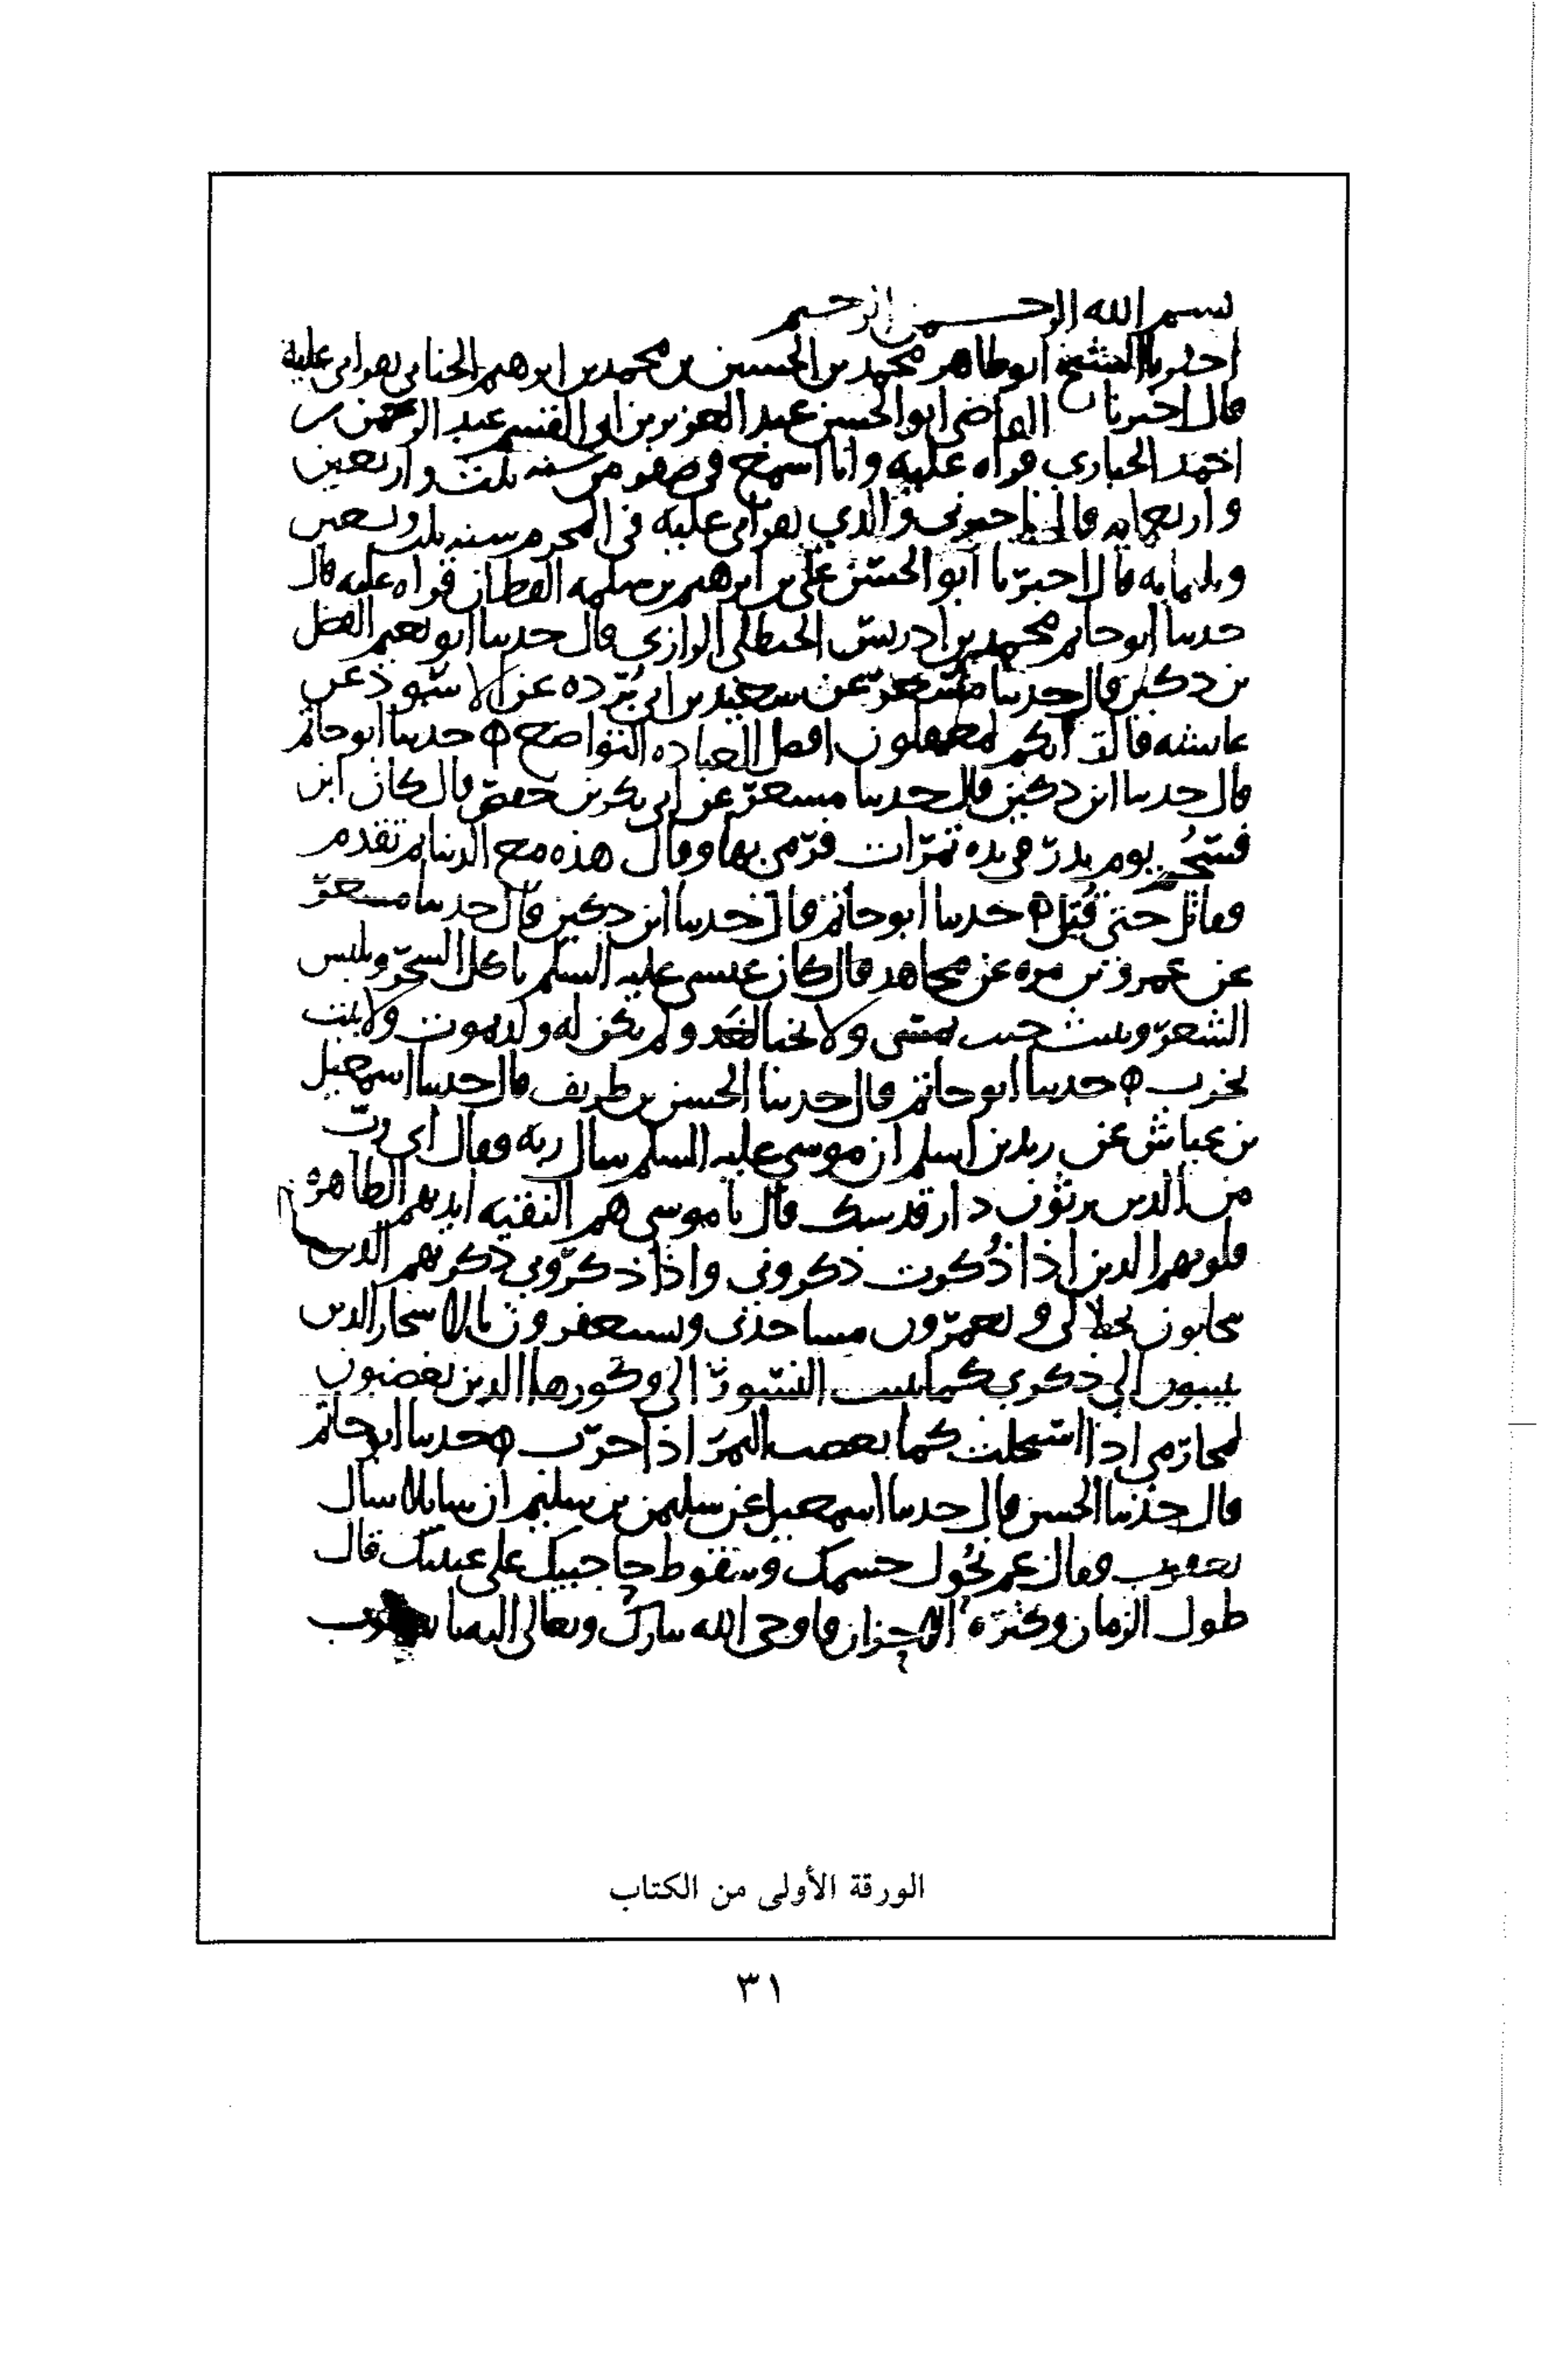 بسم الله الرحمن الرحيم
اخبرنا الشيخ ابو طاهر محمد بن الحسين بن محمد بن ابرهيم الحنائي بقراتي عليه
قال اخبرنا القاضي ابو الحسن عبد العزيز بن ابي القسم عبد الرحمن بن
احمد قراه عليه وانا اسمع في صفر من سنه ثلث واربعين
واربعمايه قال اخبرني والدي بقراتي عليه في المحرم سنه ثلث وتسعين
وثلثمايه قال اخبرنا ابو الحسن علي بن ابرهيم بن سلمه القطان قراه عليه قال
حدثنا ابو حاتم محمد بن ادريس الحنظلي الرازي قال حدثنا ابو نعيم الفضل
بن دكين قال حدثنا مسعر عن سعيد بن ابي برده عن الاسود عن
عائشه قالت انكم لتغفلون افضل العباده التواضع حدثنا ابو حاتم
قال حدثنا ابن دكين قال حدثنا مسعر عن ابي بكر بن حفص قال كان ابن
فسحم يوم بدر في يده تمرات فرمى بها وقال هذه مع الدنيا ثم تقدم
فقاتل حتى قتل حدثنا ابو حاتم قال حدثنا ابن دكين قال حدثنا مسعر
عن عمرو بن مره عن مجاهد قال كان عيسى عليه السلم ياكل الشجر ويلبس
الشعر ويبيت حيث يمشي ولا يخبا لغد ولم يكن له ولد يموت ولا بيت
يخرب حدثنا ابو حاتم قال حدثنا الحسن بن طريف قال حدثنا اسمعيل
بن عياش عن زيد بن اسلم ان موسى عليه السلم سال ربه فقال اي رب
من الذين يرثون دار قدسك قال يا موسى هم النقيه ايديهم الطاهره
قلوبهم الذين اذا ذُكرت ذكروني واذا ذكروني ذكرتهم الذين
يتحابون بجلالي ويعمرون مساجدي ويستغفرون بالاسحار الذين
ينيبون الى ذكري كما تنيب النسور الى وكورها الذين يغضبون
لمحارمي اذا استحلت كما يغضب النمر اذا حرب حدثنا ابو حاتم
قال حدثنا الحسن قال حدثنا اسمعيل عن سليمن بن سليم ان سايلا سال
يعقوب فقال عم نحول جسمك وسقوط حاجبيك على عينيك قال
طول الزمان وكثره الاحزان فاوحى الله تبارك وتعالى اليه يا يعقوب
الورقة الأولى من الكتاب
٣١